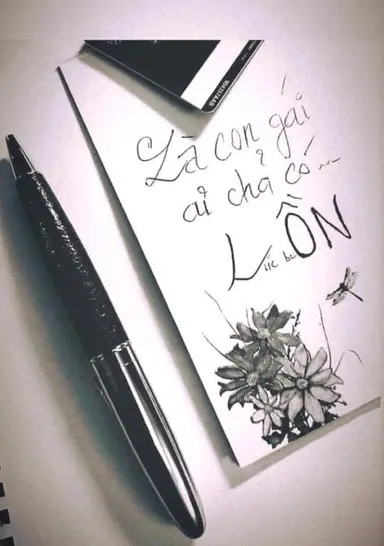 Là con gái
ai chả có...
Lúc buỒN